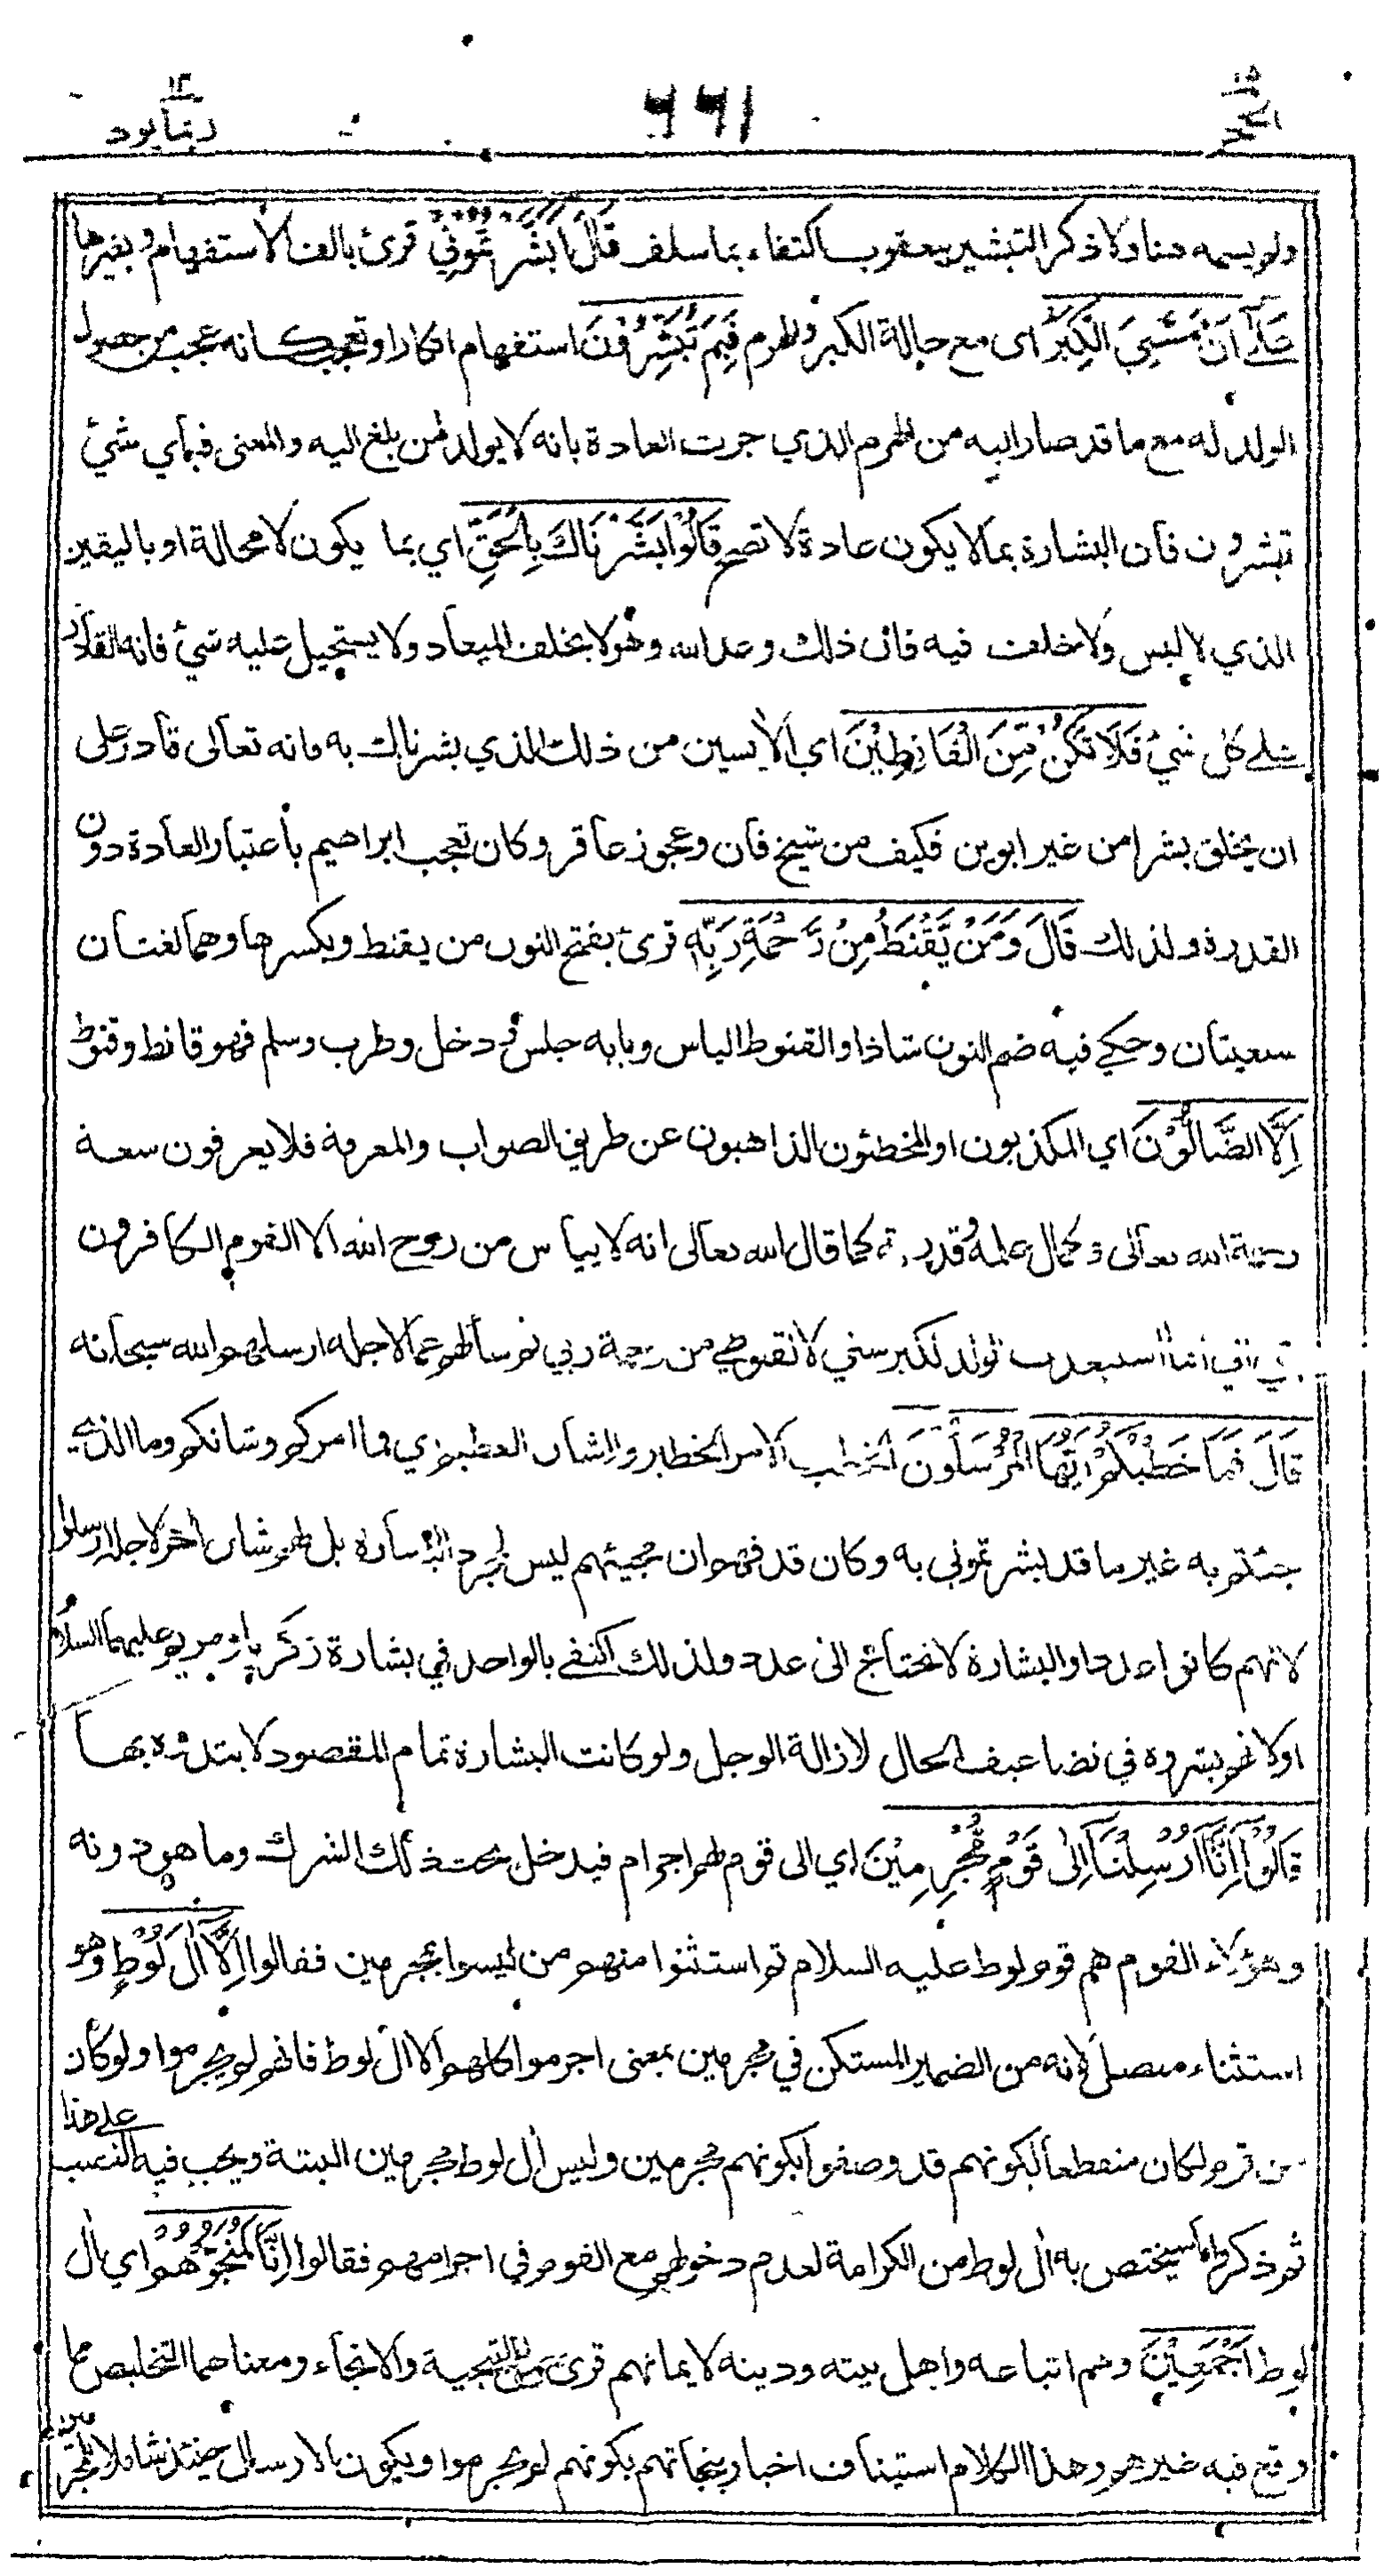 الحجر ١٥
٦٦١
ربما يود ١٤
ولم يسمه هنا ولا ذكر التبشير بيعقوب اكتفاء بما سلف قَالَ اَبَشَّرْتُمُوْنِيْ قرئ بالف الاستفهام وبغيرها
عَلٰٓى اَنْ مَّسَّنِيَ الْكِبَرُ اى مع حالة الكبر والهرم فَبِمَ تُبَشِّرُوْنَ استفهام انكار او تعجب كانه عجب من حصول
الولد له مع ما قد صار اليه من الهرم الذي جرت العادة بانه لا يولد لمن بلغ اليه والمعنى فبأي شيئ
تبشرون فان البشارة بما لا يكون عادة لا تصح قَالُوْا بَشَّرْنَاكَ بِالْحَقِّ اي بما يكون لا محالة او باليقين
الذي لا لبس ولا خلف فيه فان ذلك وعد الله وهو لا يخلف الميعاد ولا يستحيل عليه شيئ فانه القادر
على كل شيئ فَلَا تَكُنْ مِّنَ الْقَانِطِيْنَ اي الآيسين من ذلك الذي بشرناك به فانه تعالى قادر على
ان يخلق بشرا من غير ابوين فكيف من شيخ فان وعجوز عاقر وكان تعجب ابراهيم باعتبار العادة دون
القدرة ولذلك قَالَ وَمَنْ يَّقْنَطُ مِنْ رَّحْمَةِ رَبِّهٖ قرئ بفتح النون من يقنط وبكسرها وهما لغتان
سبعيتان وحكي فيه ضم النون شاذا والقنوط الياس وبابه جلس ودخل وطرب وسلم فهو قانط وقنوط
اِلَّا الضَّالُّوْنَ اي المكذبون او المخطئون الذاهبون عن طريق الصواب والمعرفة فلا يعرفون سعة
رحمة الله تعالى وكمال علمه وقدرته كما قال الله تعالى انه لا ييأس من روح الله الا القوم الكافرون
اني انما استبعدت الولد لكبر سني لا لقنوطي من رحمة ربي ثم سألهم عما لاجله ارسلهم الله سبحانه
قَالَ فَمَا خَطْبُكُمْ اَيُّهَا الْمُرْسَلُوْنَ الخطب الامر الخطير والشان العظيم اي فما امركم وشانكم وما الذي
جئتم به غير ما قد بشرتموني به وكان قد فهم ان مجيئهم ليس لمجرد البشارة بل لهم شان اخر لاجله ارسلوا
لانهم كانوا عددا والبشارة لا تحتاج الى عدد ولذلك اكتفى بالواحد في بشارة زكريا ومريم عليهما السلام
او لانهم بشروه في تضاعيف الحال لازالة الوجل ولو كانت البشارة تمام المقصود لابتدءوه بها
قَالُوْٓا اِنَّآ اُرْسِلْنَآ اِلٰى قَوْمٍ مُّجْرِمِيْنَ اي الى قوم لهم اجرام فيدخل تحت ذلك الشرك وما هو دونه
وهؤلاء القوم هم قوم لوط عليه السلام ثم استثنوا منهم من ليسوا بمجرمين فقالوا اِلَّآ اٰلَ لُوْطٍ وهو
استثناء متصل لانه من الضمير المستكن في مجرمين بمعنى اجرموا كلهم الا ال لوط فانهم لم يجرموا ولو كان
من قوم لكان منقطعا لكونهم قد وصفوا بكونهم مجرمين وليس ال لوط مجرمين البتة ويجب فيه النصب على هذا
ثم ذكروا ما سيختص به ال لوط من الكرامة لعدم دخولهم مع القوم في اجرامهم فقالوا اِنَّا لَمُنَجُّوْهُمْ اي ال
لوط اَجْمَعِيْنَ وهم اتباعه واهل بيته ودينه لايمانهم قرئ من التنجية والانجاء ومعناهما التخليص مما
وقع فيه غيرهم وهذا الكلام استيناف اخبار بنجاتهم بكونهم لم يجرموا ويكون الارسال حينئذ شاملا للمجرمين